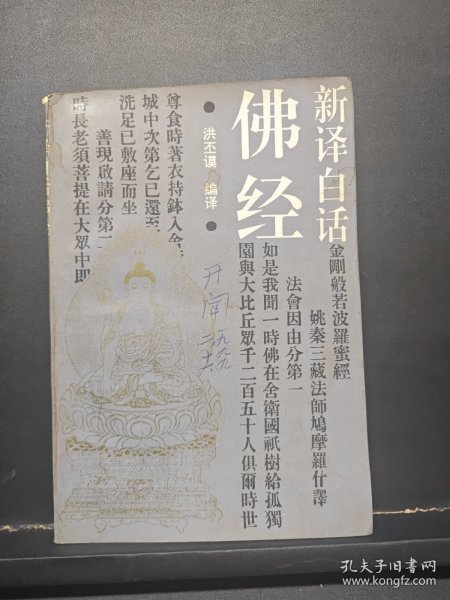 新译白话
佛经
洪丕谟 编译
金剛般若波羅蜜經
姚秦三藏法師鳩摩羅什譯
法會因由分第一
如是我聞一時佛在舍衛國祇樹給孤獨
園與大比丘眾千二百五十人俱爾時世
尊食時著衣持鉢入舍
城中次第乞已還至
洗足已敷座而坐
善現啟請分第二
時長老須菩提在大眾中即
一九九九
孔夫子旧书网
www.kongfz.com